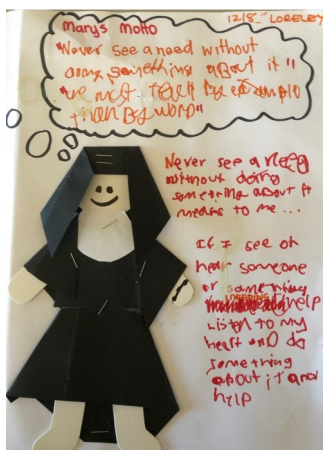 12/8 LORELEY
Marys Motto
"Never see a need without
doing something about it"
"we must teach by example
then by word"
Never see a need
without doing
something about it
means to me...
If I see oh
hear someone
or something
needing help
Listen to my
heart and do
something
about it and
help